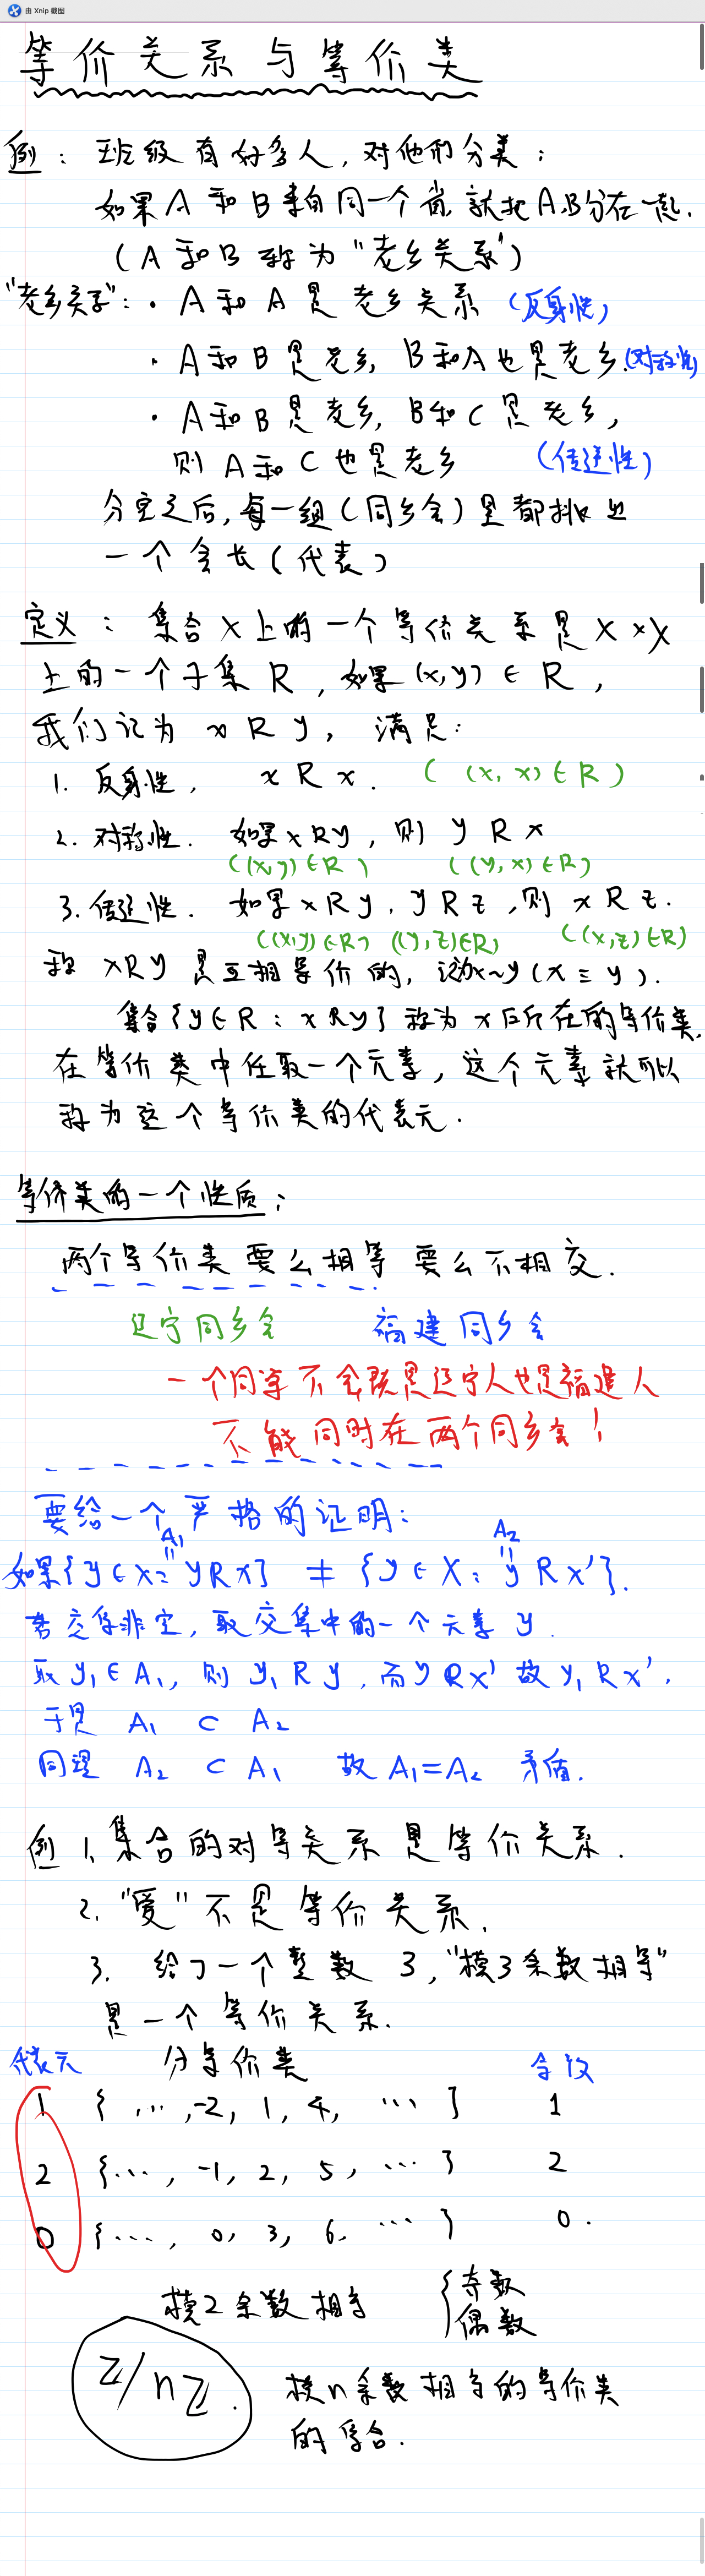 由 Xnip 截图
等价关系与等价类
例：班级有好多人，对他们分类：
如果A和B来自同一个省，就把A,B分在一起.
（A和B称为"老乡关系"）
"老乡关系"：· A和A是老乡关系（反身性）
· A和B是老乡，B和A也是老乡.（对称性）
· A和B是老乡，B和C是老乡，
则A和C也是老乡（传递性）
分完之后，每一组（同乡会）里都挑出
一个会长（代表）
定义：集合X上的一个等价关系是X×X
上的一个子集R，如果(x,y)∈R，
我们记为xRy，满足：
1. 反身性，xRx.（(x,x)∈R）
2. 对称性. 如果xRy，则yRx
（(x,y)∈R）（(y,x)∈R）
3. 传递性. 如果xRy，yRz，则xRz.
（(x,y)∈R）（(y,z)∈R）（(x,z)∈R）
称xRy是互相等价的，记为x~y（x≡y）.
集合{y∈R：xRy}称为x所在的等价类.
在等价类中任取一个元素，这个元素就可以
称为这个等价类的代表元.
等价类的一个性质：
两个等价类要么相等要么不相交.
辽宁同乡会 福建同乡会
一个同学不会既是辽宁人也是福建人
不能同时在两个同乡会！
要给一个严格的证明：
A₁ A₂
如果{y∈X：yRx}≠{y∈X：yRx'}.
若交集非空，取交集中的一个元素y.
取y₁∈A₁，则y₁Ry，而yRx'故y₁Rx'.
于是A₁⊂A₂
同理A₂⊂A₁ 故A₁=A₂ 矛盾.
例1、集合的对等关系是等价关系.
2、"爱"不是等价关系.
3. 给了一个整数3，"模3余数相等"
是一个等价关系.
代表元 分等价类 余数
1 {…,-2,1,4,…} 1
2 {…,-1,2,5,…} 2
0 {…,0,3,6,…} 0.
模2余数相等 {奇数
偶数
ℤ/nℤ. 模n余数相等的等价类
的集合.